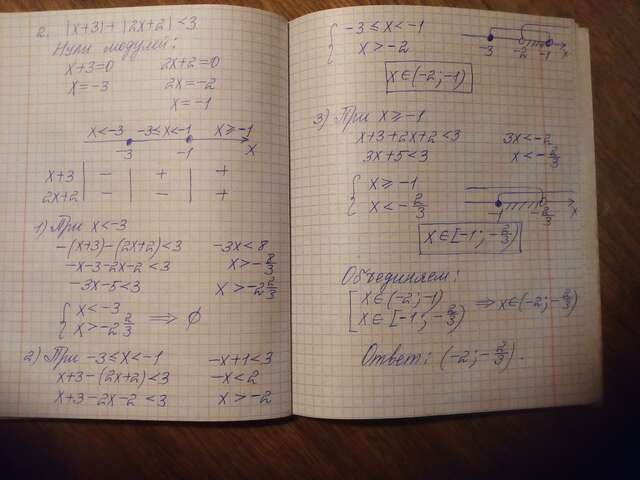 2. |x+3|+|2x+2|<3
Нули модулей:
x+3=0 2x+2=0
x=-3 2x=-2
x=-1
x<-3 -3≤x<-1 x≥-1
-3 -1 x
x+3 | - | + | +
2x+2 | - | - | +
1) При x<-3
-(x+3)-(2x+2)<3 -3x<8
-x-3-2x-2<3 x>-8/3
-3x-5<3 x>-2 2/3
{ x<-3
x>-2 2/3 ⇒ ∅
2) При -3≤x<-1 -x+1<3
x+3-(2x+2)<3 -x<2
x+3-2x-2<3 x>-2
{ -3≤x<-1
x>-2
-3 -2 -1 x
x∈(-2;-1)
3) При x≥-1
x+3+2x+2<3 3x<-2
3x+5<3 x<-2/3
{ x≥-1
x<-2/3
-1 -2/3 x
x∈[-1;-2/3)
Объединяем:
[ x∈(-2;-1)
x∈[-1;-2/3) ⇒ x∈(-2;-2/3)
Ответ: (-2;-2/3).